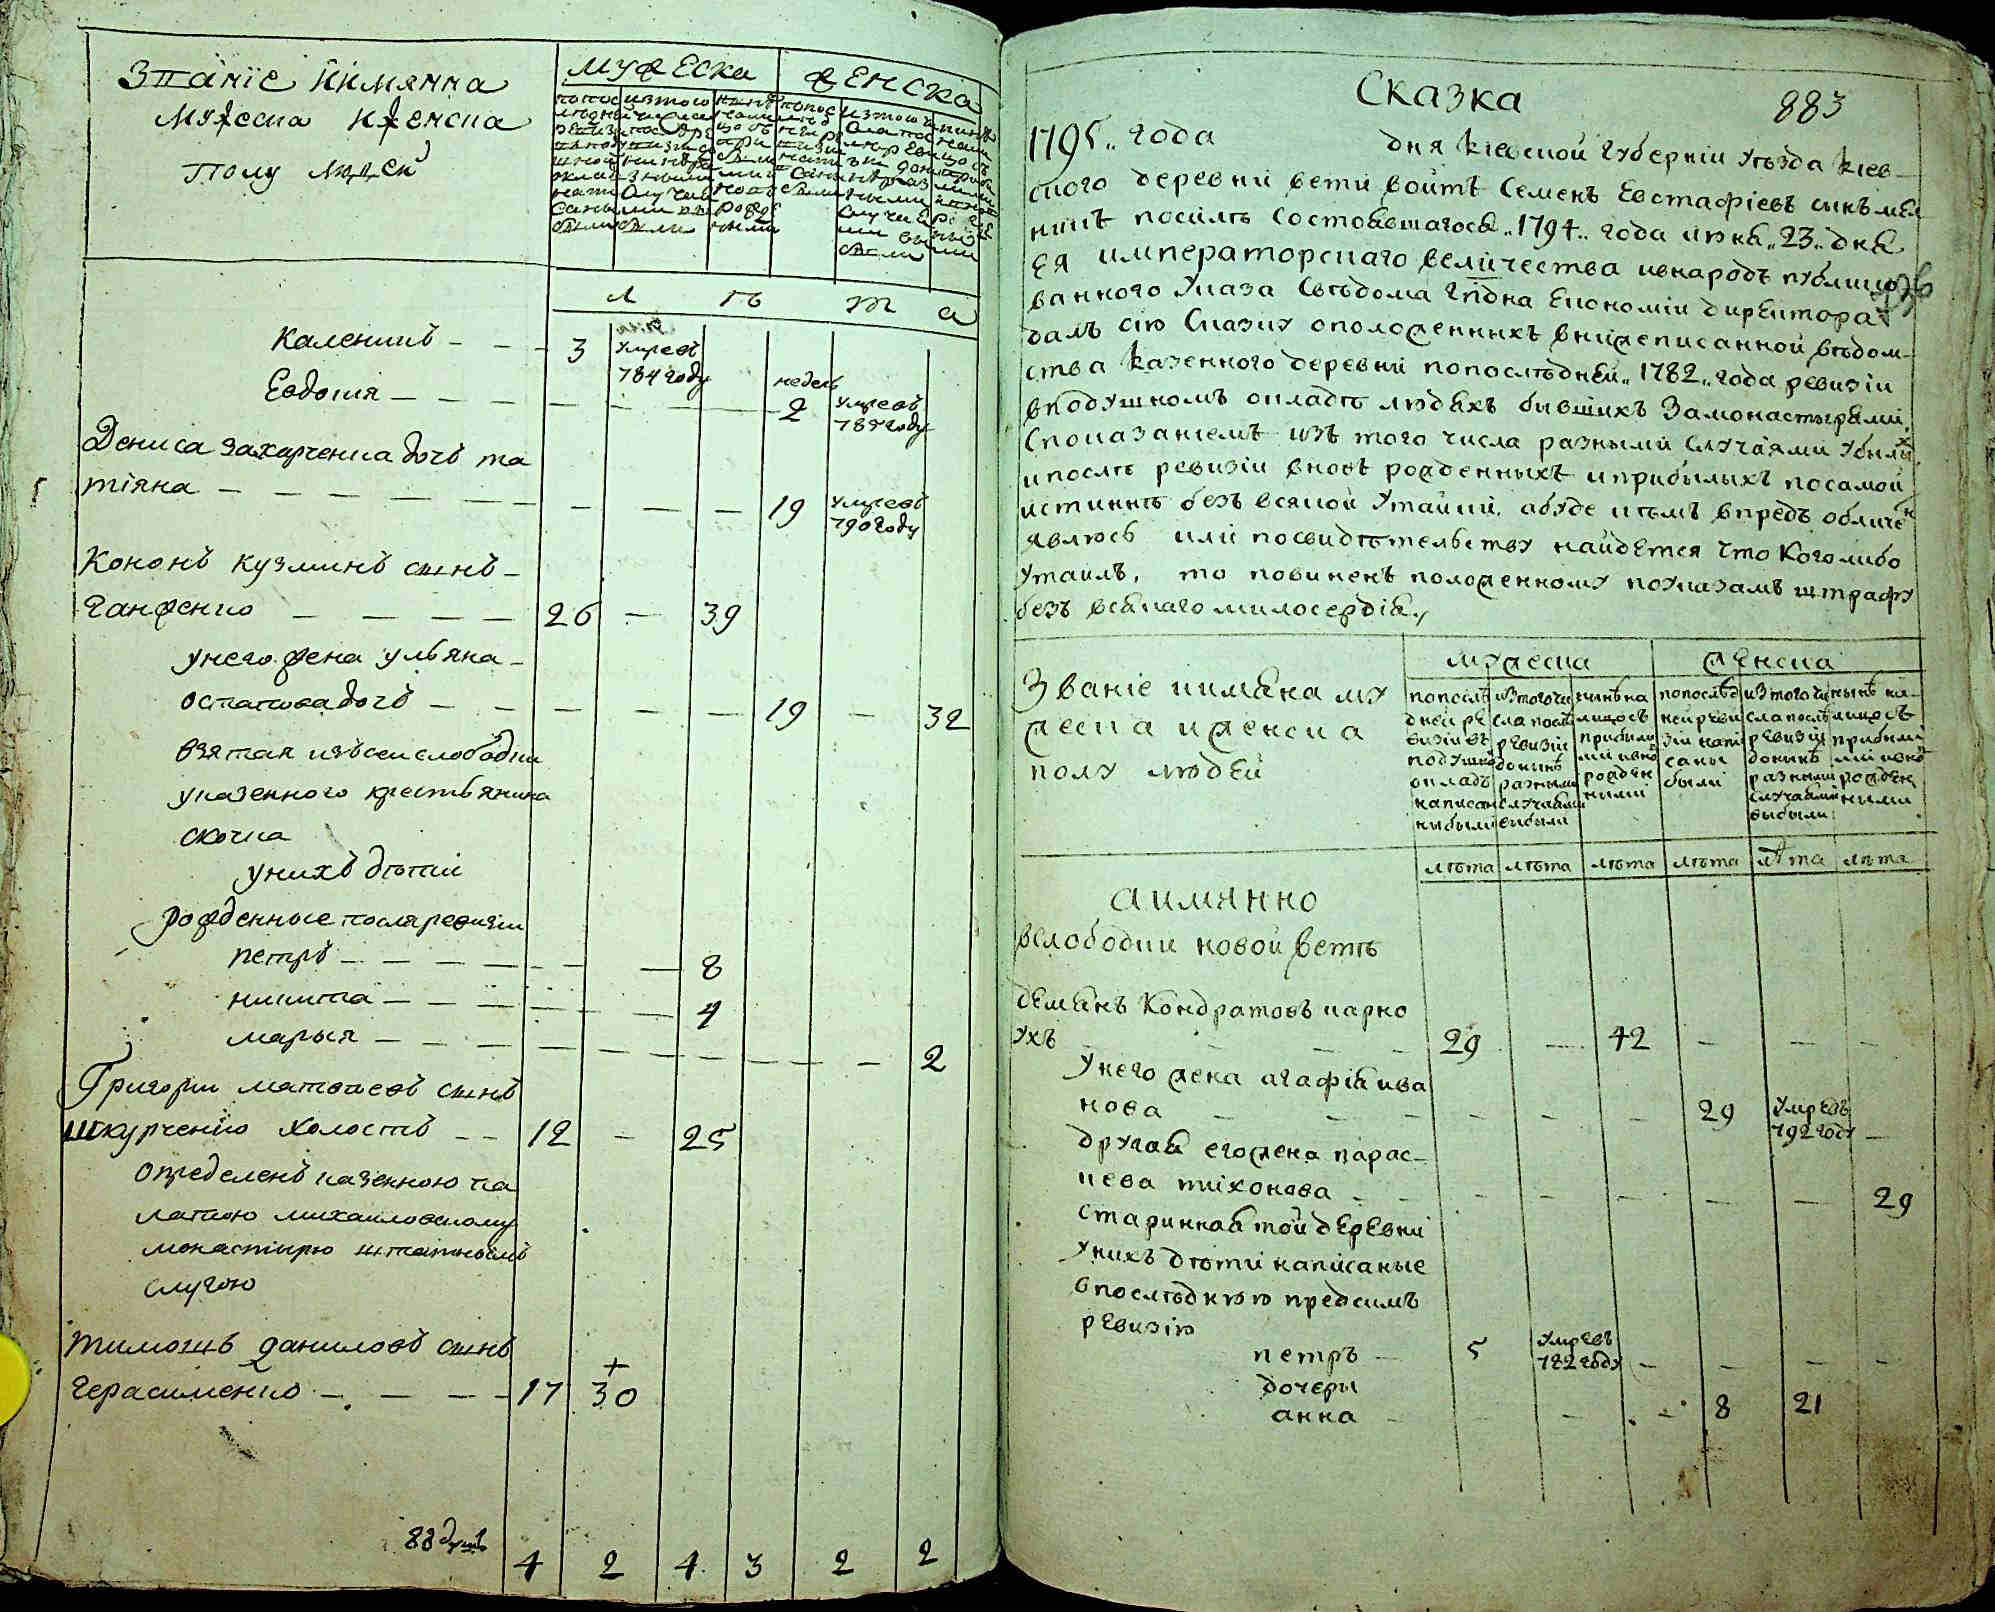 Званіе имянна
мужеска и женска
полу людей
мужеска
женска
лѣта
каленикъ - - - 3 умревъ 784 году
Евдокія - - - - - недель 2 умревъ 787 году
Дениса захарченка дочь та
тіяна - - - - - - - - - 19 умревъ 790 году
Кононъ кузминъ синъ -
ганженко - - - - 26 - 39
унего жена ульяна -
остапова дочь - - - - - - 19 - 32
взятая изъ сеи слободки
указенного крестьянина
скочка
унихъ дѣтии
рожденные посля ревизіи
петръ - - - - - - - 8
никита - - - - - - 4
марья - - - - - - - - - - - 2
Григори матвѣевъ синъ
шкурченко холостъ - - 12 - 25
определенъ казенною па
латою михаиловскому
монастирю штатнымъ
слугою
тимошъ даниловъ синъ
герасименко - - - - 17 + 30
88 душъ 4 2 4 3 2 2
Сказка
883
1795,, года дня кіевской губерніи уѣзда кіев-
ского деревни вети войтъ Семенъ Евстафіевъ синъ мел
никъ посилѣ состоявшагося,, 1794,, года июня,, 23,, дня
Ея императорскаго величества ивнародъ публико
ванного указа свѣдома гпдна економіи директора
далъ сію сказку оположенныхъ вышеписанной вѣдом-
ства казенного деревни попослѣдней,, 1782,, года ревизіи
вподушномъ окладѣ людяхъ бившихъ замонастырями,
споказаніемъ изъ того числа разными случаями убили
ипослѣ ревизіи вновъ рожденныхъ иприбылыхъ посамой
истиннѣ безъ всякой утайки, абуде кѣмъ впредъ обличе н
явлюсь или посвидѣтельству найдется что кого либо
утаилъ, то повиненъ положенному поуказамъ штрафу
безъ всякаго милосердія,,
Званіе иимянна му
жеска иженска
полу людей
мужеска
женска
попослѣ
дней ре
визіи въ
подушно
окладъ
написан
ныбыли
изтогочи
сла послѣ
ревизіи
донинѣ
разными
случаями
вибыли
нинѣна
лицосъ
прибили
ми ивно
рожден
ними
попослѣд
ней реви
зіи напи
саны
были
изтогочи
сла послѣ
ревизіи
донинѣ
разними
случаями
выбыли
нынѣ на-
лицосъ
прибили
ми ивно
рожден
ними
лѣта лѣта лѣта лѣта лѣта лѣта
аимянно
вслободки новой ветѣ
демянъ кондратовъ карно
ухъ - - - - 29 - 42 - - -
унего жена агафія ива
нова - - - - - - 29 умревъ 792 году -
другая егожена парас-
кева тихонова - - - - - - - 29
стариннаа той деревни
унихъ дѣти написаные
впослѣднюю предсимъ
ревизію
петръ - 5 умревъ 782 году - - - -
дочеры
анна - - - - 8 21